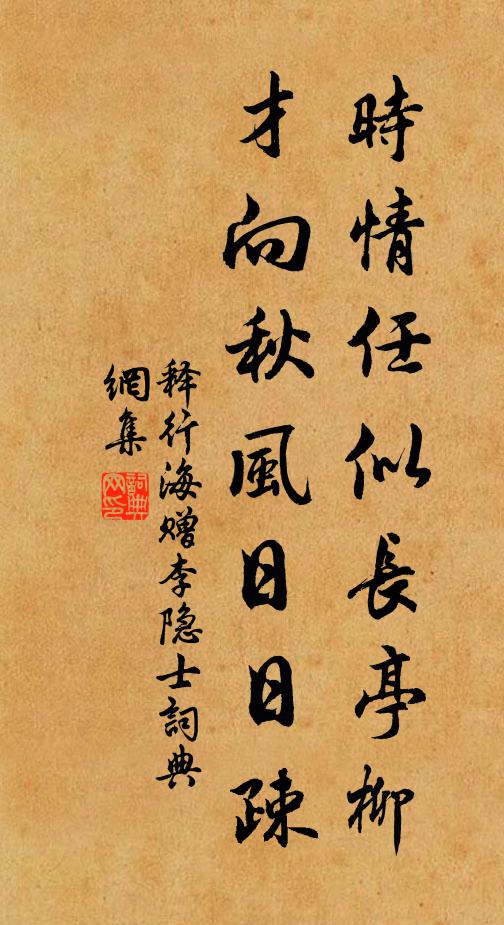 時情任似長亭柳
才向秋風日日疎
释行海赠李隐士詞典
網集
詞典网印